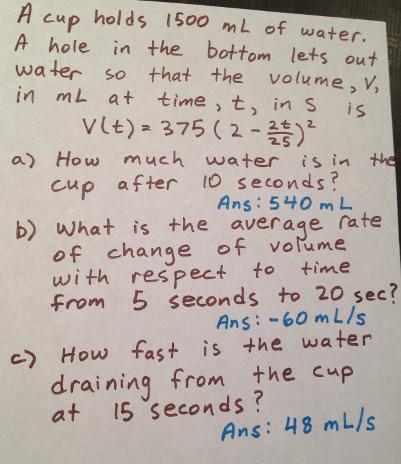 A cup holds 1500 mL of water.
A hole in the bottom lets out
water so that the volume, V,
in mL at time, t, in s is
V(t) = 375 (2 - 2t/25)²
a) How much water is in the
cup after 10 seconds?
Ans: 540 mL
b) What is the average rate
of change of volume
with respect to time
from 5 seconds to 20 sec?
Ans: -60 mL/s
c) How fast is the water
draining from the cup
at 15 seconds?
Ans: 48 mL/s